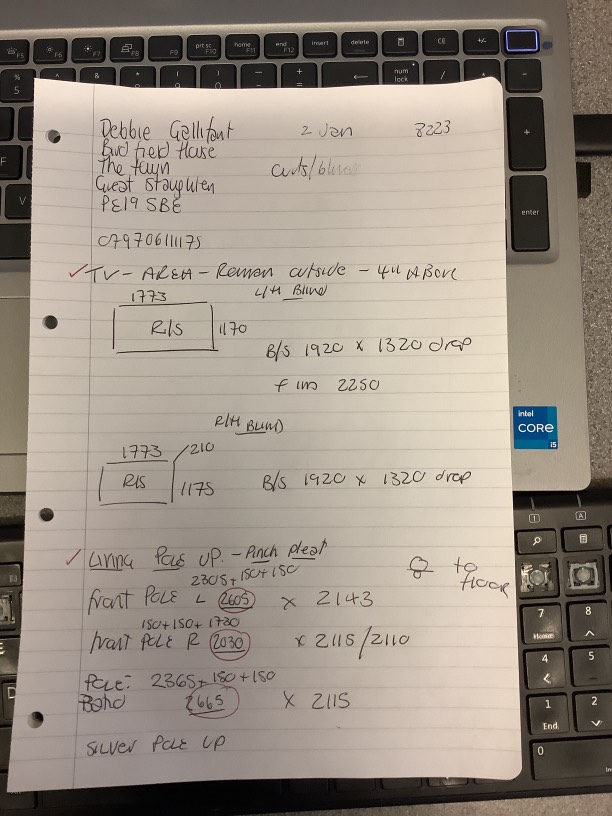 Debbie Gallifant 2 Jan 8223
House
The Town
Great Staughton
PE19 5BE
curts/blinds
07970611175
✓ TV - AREA - Roman outside - 4" ABOVE
L/H Blind
1773
R/S 1170
B/S 1920 x 1320 drop
2250
R/H BLIND
1773 210
R/S 1175
B/S 1920 x 1320 drop
✓ Living Pole UP. - Pinch pleat
2305 + 150 + 150
to
FLOOR
front POLE L 2605 x 2143
150 + 150 + 1730
front POLE R 2030 x 2115/2110
POLE: 2365 + 150 + 150
2665 x 2115
SILVER POLE UP
intel
CORE
i5
prt sc
home
end
insert
delete
num
lock
enter
F5
F6
F7
F8
F9
F10
F11
F12
CE
+/-
7
Home
8
4
5
1
End
2
0